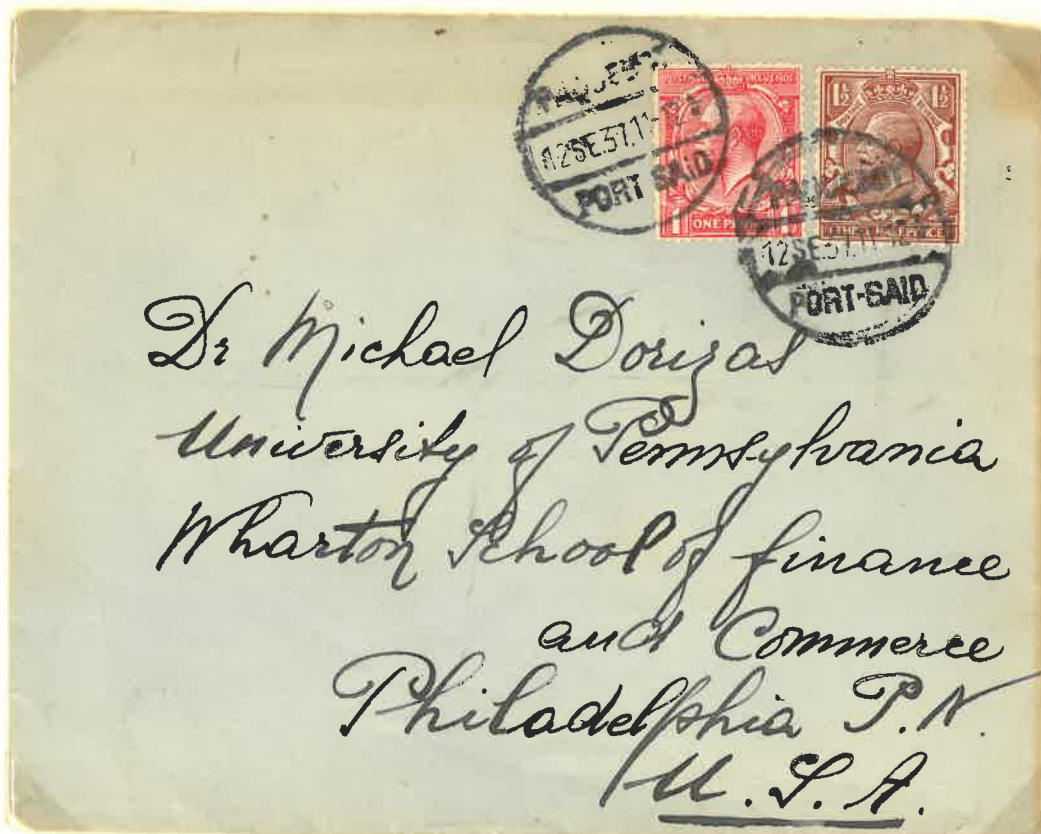 12SE.37.11-12
PORT-SAID
POSTAGE REVENUE
ONE PENNY
1½ 1½
12SE.37.11-12
PORT-SAID
Dr Michael Dorizas
University of Pennsylvania
Wharton School of finance
and Commerce
Philadelphia P.N.
U.S.A.